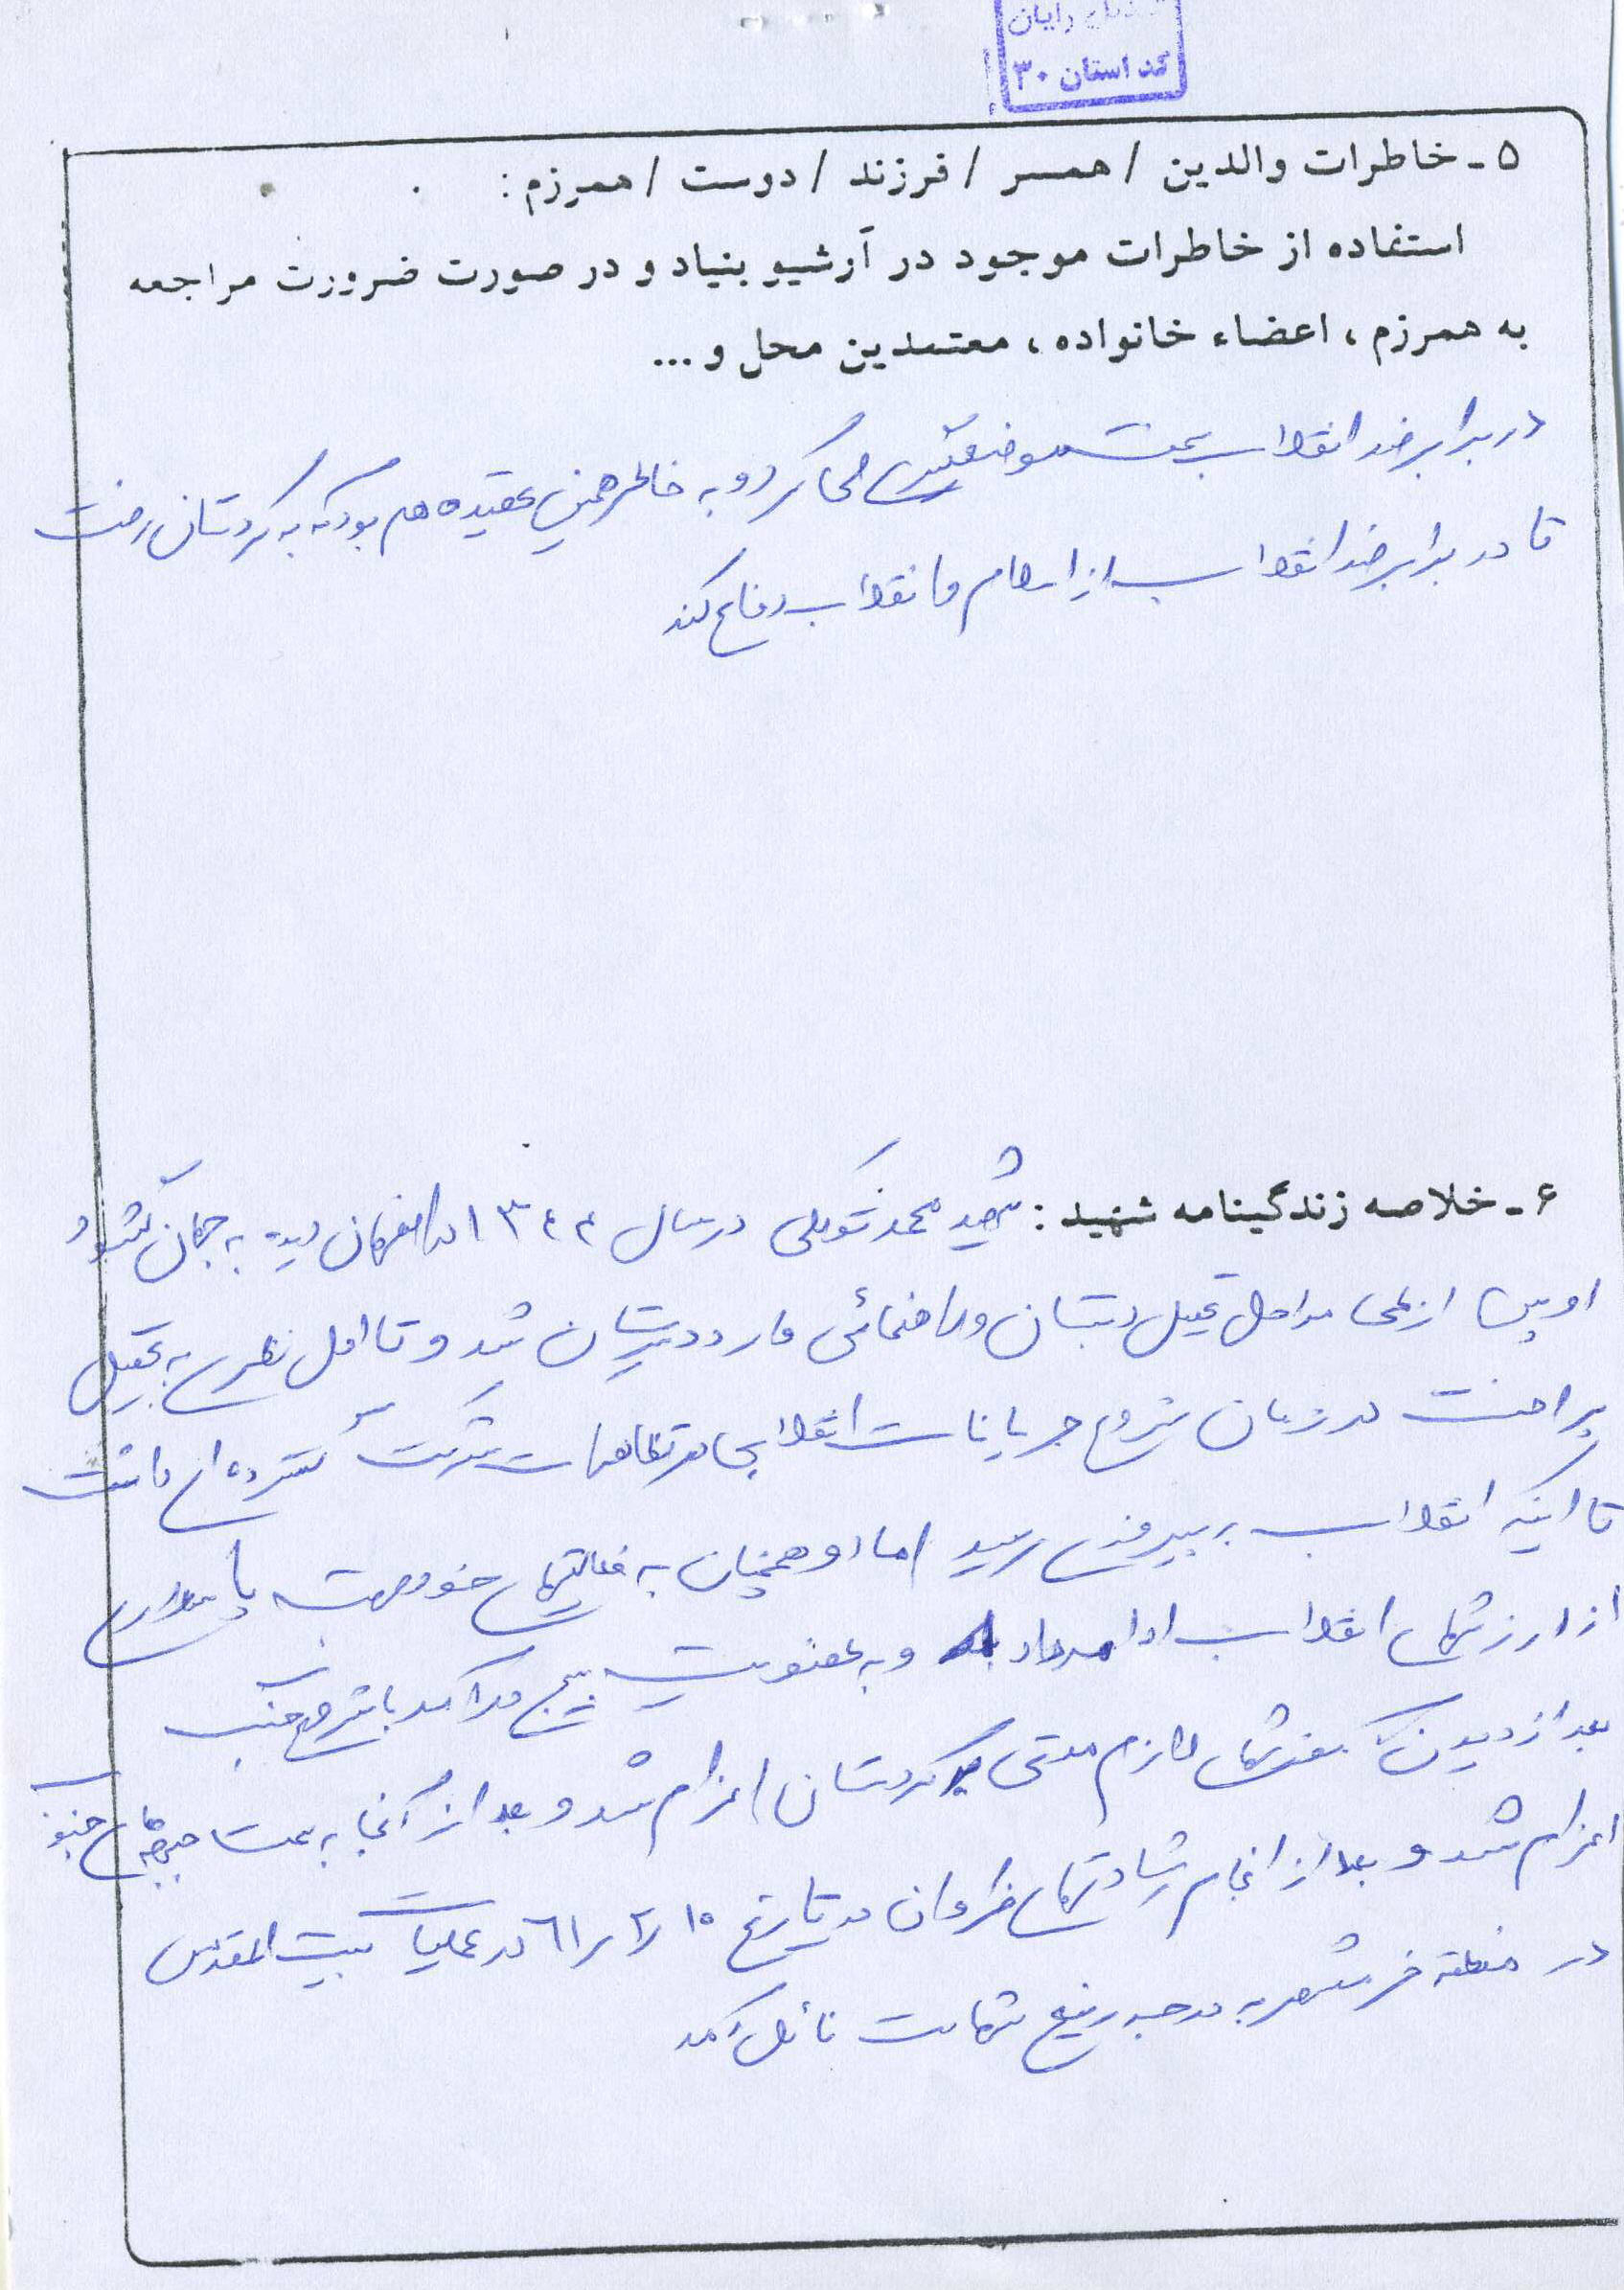 رایان
کد استان ۳۰
۵ - خاطرات والدین / همسر / فرزند / دوست / همرزم :
استفاده از خاطرات موجود در آرشیو بنیاد و در صورت ضرورت مراجعه
به همرزم ، اعضاء خانواده ، معتمدین محل و ...
در برابر ضد انقلاب بسختی می کرد و به خاطر همین عقیده هم بود که به کردستان رفت
تا در برابر ضد انقلاب از اسلام و انقلاب دفاع کند
۶ - خلاصه زندگینامه شهید : شهید محمد توکلی در سال ۱۳۴۲ در اصفهان دیده به جهان گشود
او پس از طی مراحل تحصیل دبستان و راهنمائی وارد دبیرستان شد و تا اول نظری به تحصیل
پرداخت در زمان شروع جریانات انقلاب در تظاهرات شرکت گسترده ای داشت
تا اینکه انقلاب به پیروزی رسید اما او همچنان به فعالیتهای خود جهت پاسداری
از ارزشهای انقلاب ادامه داد و به عضویت بسیج درآمد با شروع جنگ
بعد از دیدن آموزشهای لازم مدتی به کردستان اعزام شد و بعد از آنجا به سمت جبهه های جنوب
اعزام شد و بعد از انجام رشادتهای فراوان در تاریخ ۶۱/۲/۱۰ در عملیات بیت المقدس
در منطقه خرمشهر به درجه رفیع شهادت نائل آمد